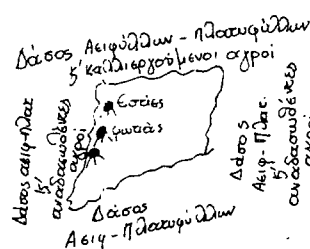 Δάσος Αειφύλλων - Πλατυφύλλων
5' καλλιεργούμενοι αγροί
Εστίες
φωτιάς
Δάσος αειφ-πλατ
5'
αναδασωθέντες
αγροί
Δάσος
Αειφ-Πλατ.
5'
αναδασωθέντες
αγροί
Δάσος
Αειφ-Πλατυφύλλων